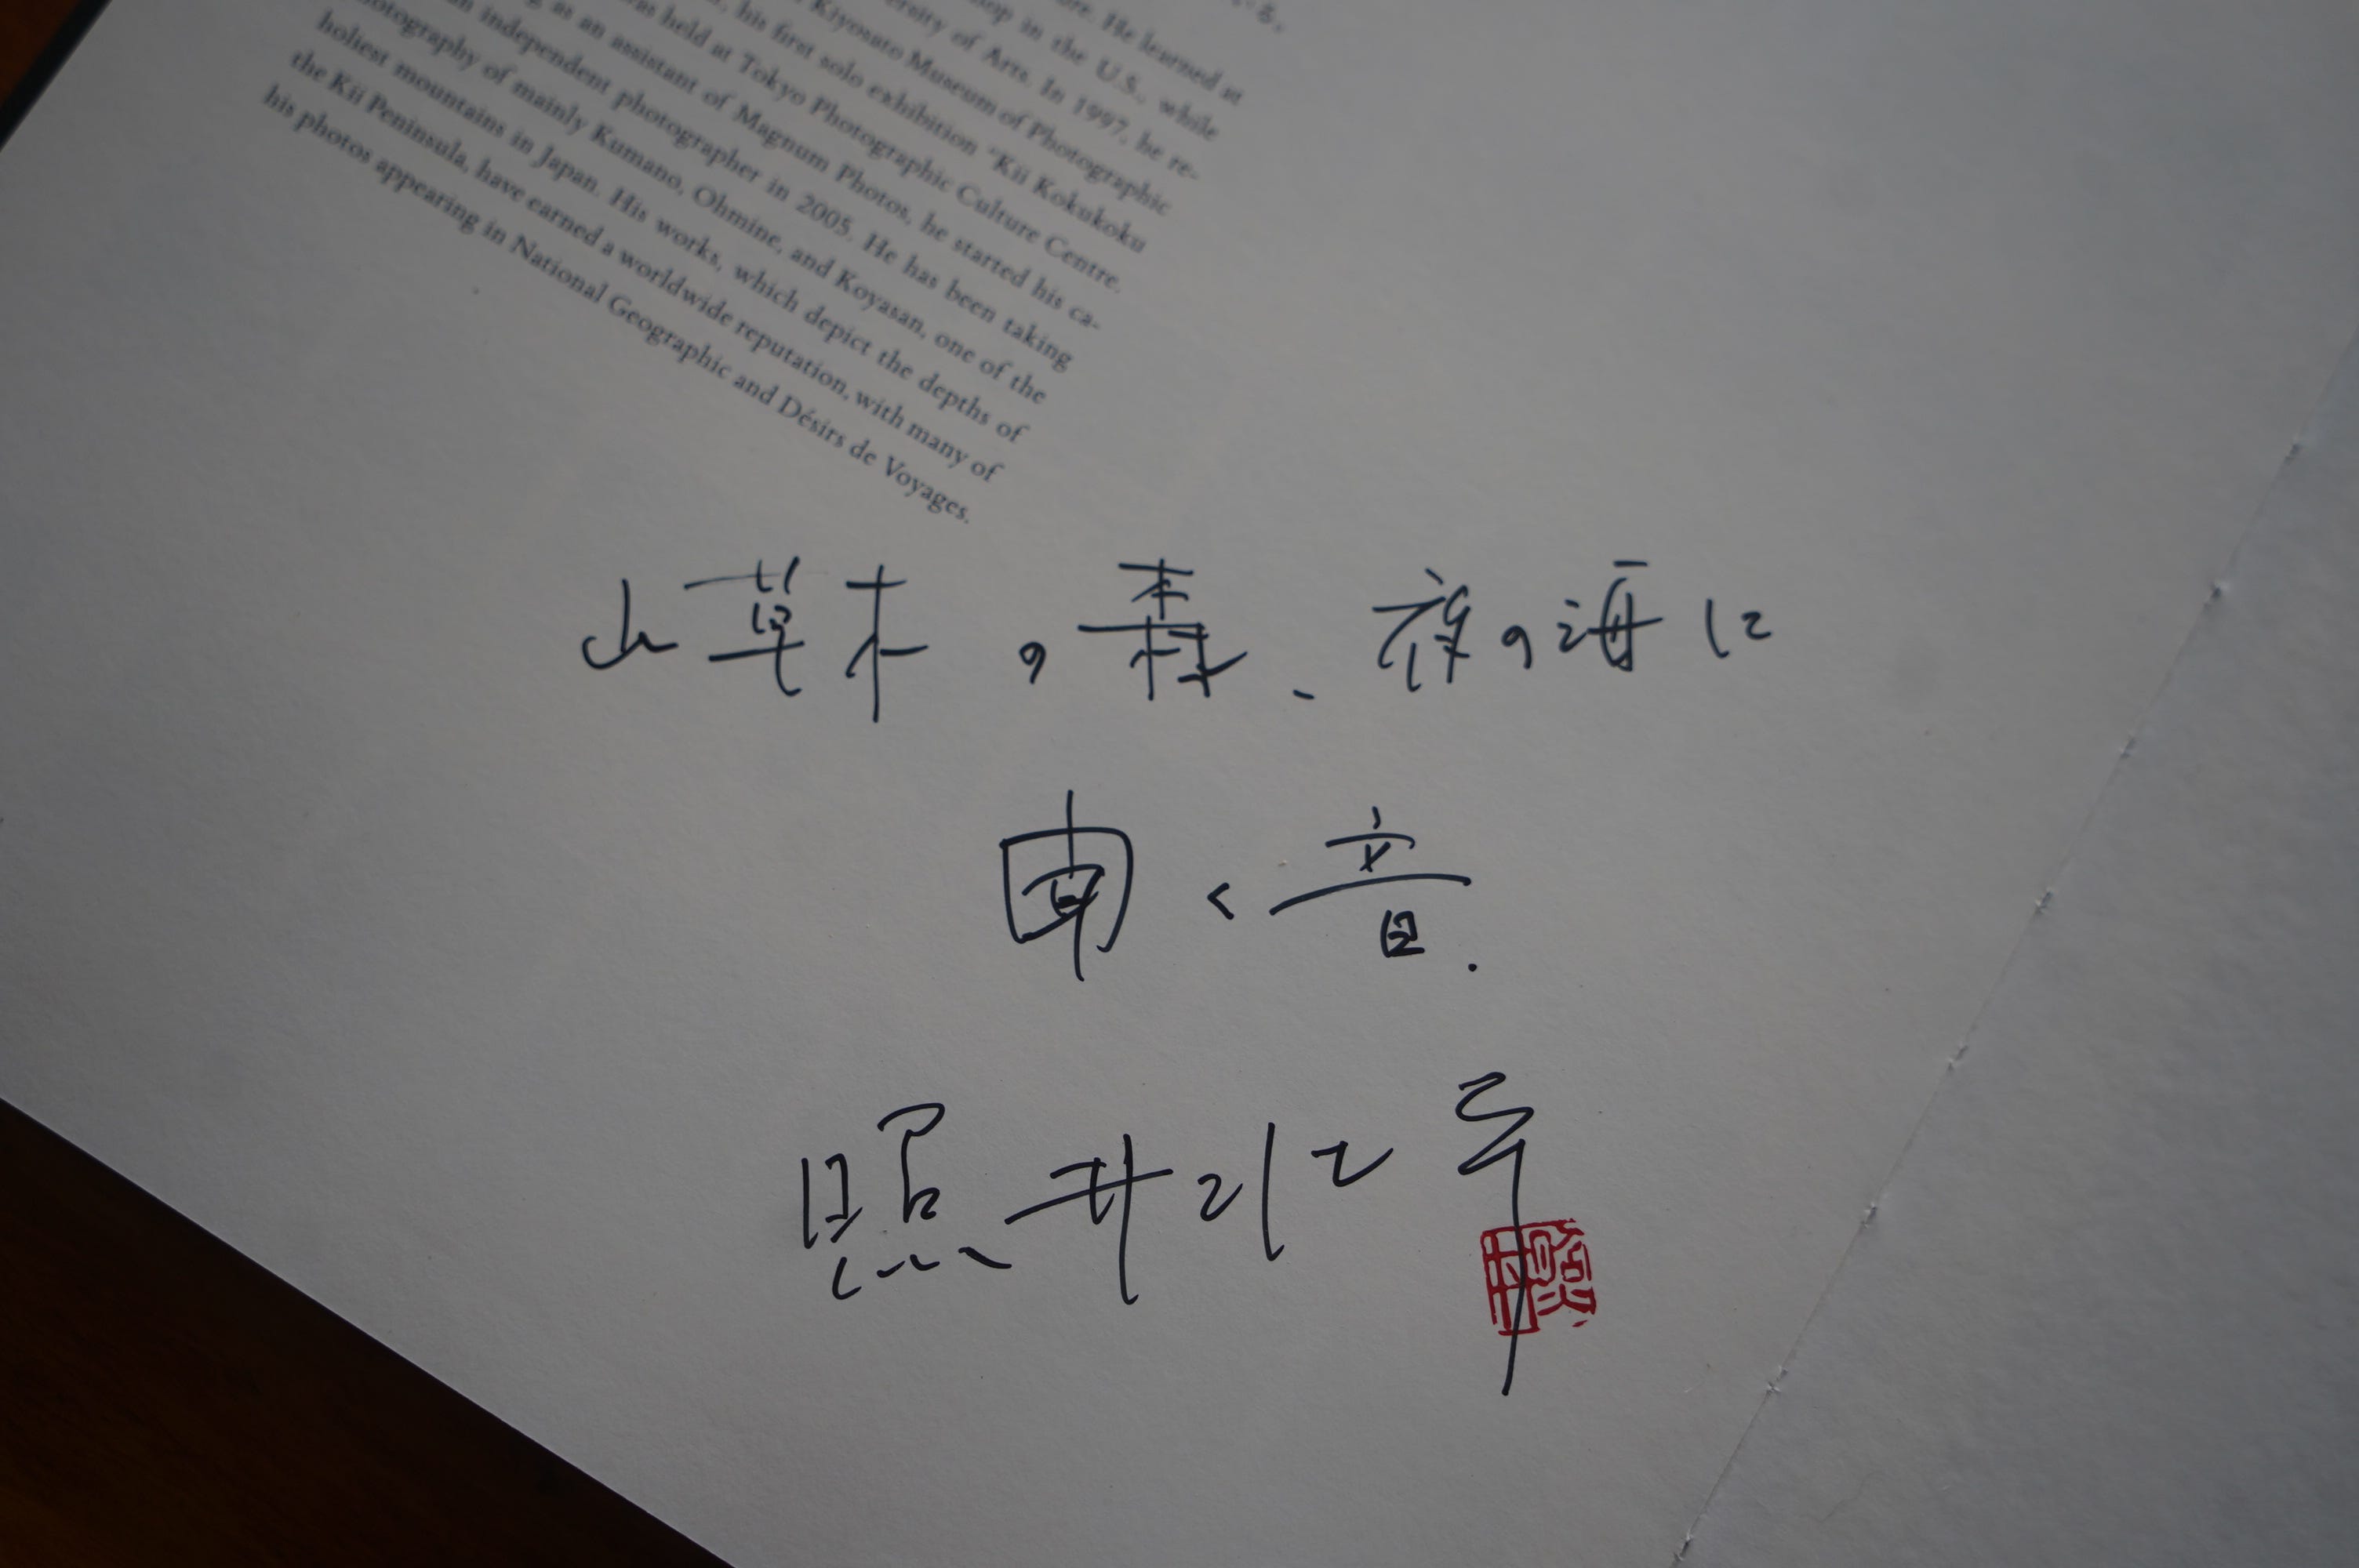 ore. He learned at
op in the U.S., while
ersity of Arts. In 1997, he re-
Kiyosato Museum of Photographic
his first solo exhibition "Kii Kokukoku
as held at Tokyo Photographic Culture Centre.
as an assistant of Magnum Photos, he started his ca-
an independent photographer in 2005. He has been taking
photography of mainly Kumano, Ohmine, and Koyasan, one of the
holiest mountains in Japan. His works, which depict the depths of
the Kii Peninsula, have earned a worldwide reputation, with many of
his photos appearing in National Geographic and Désirs de Voyages.
山草木の森、夜の海に
聞く音.
照井